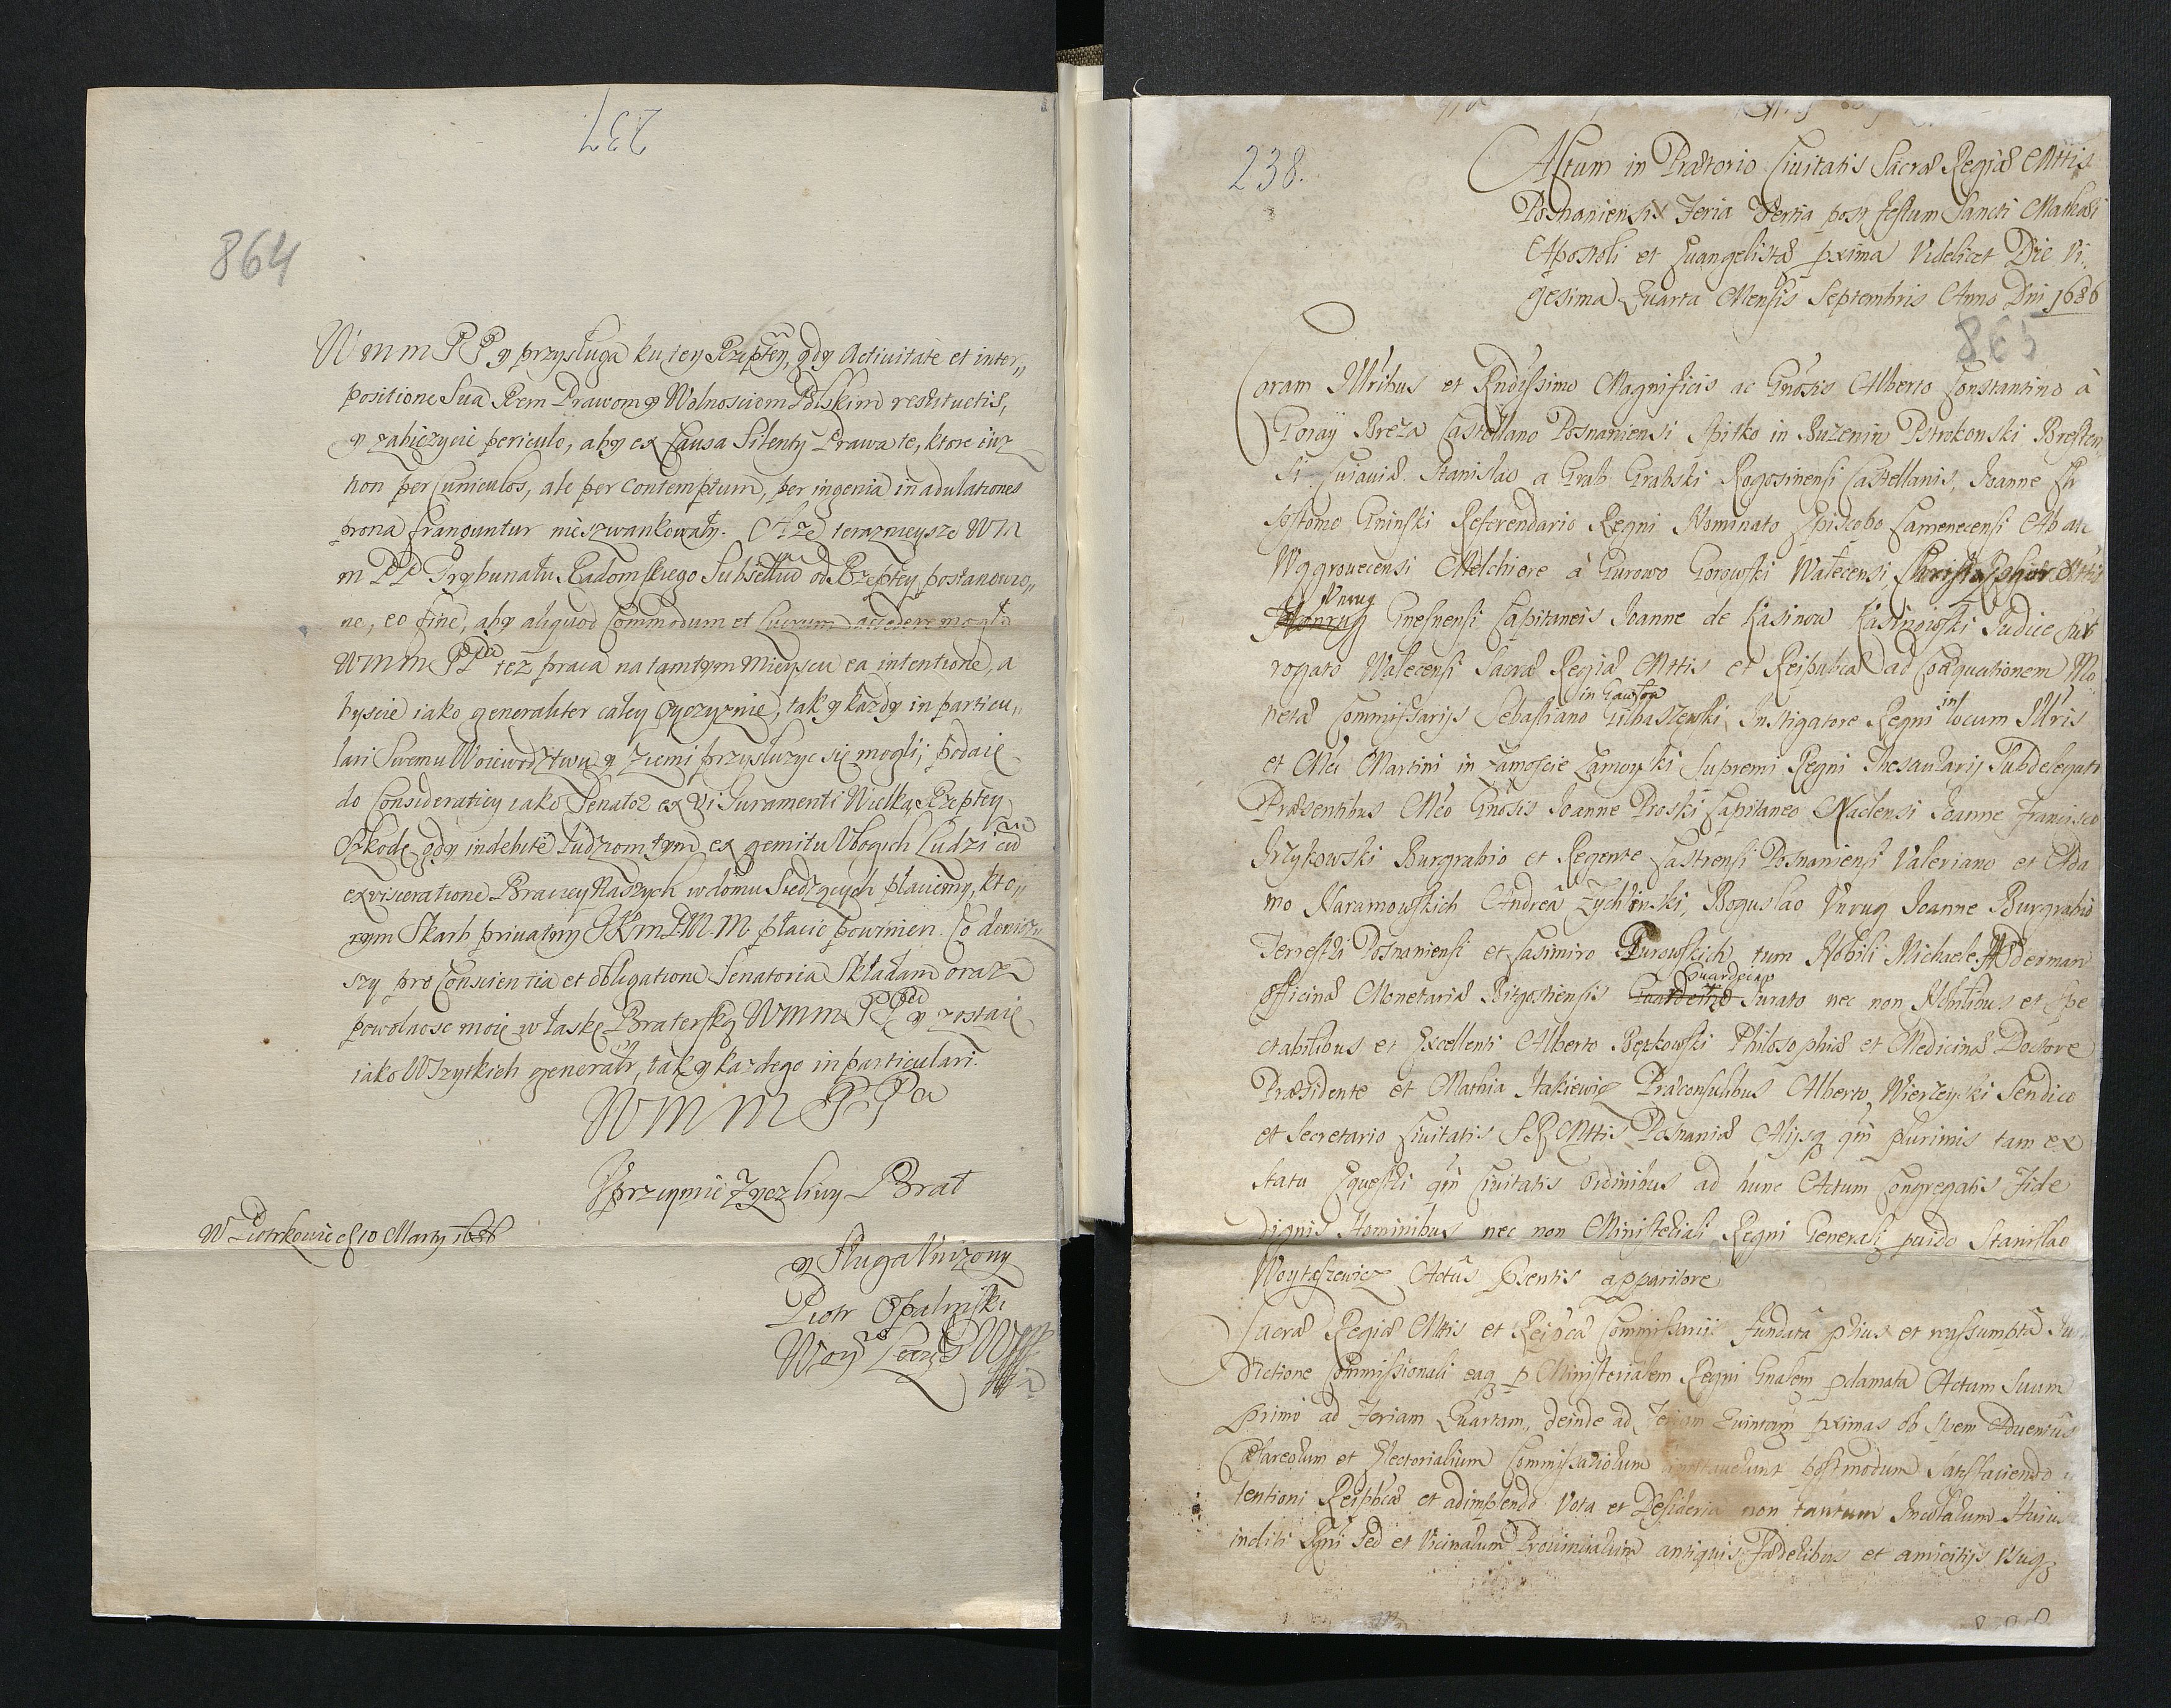 237
864
W m m P P y przysługa ku tey Rzeptey, gdy Activitate et inter„
positione Sua Rem Prawom y Wolnosciom Polskim restituetis,
y zabieżycie periculo, aby ex Causa Silentij Prawa te, ktore iuz
non per Cuniculos, ale per contemptum, per ingenia in adulationes
prona franguntur nie szwankowały. A ze teraznieysze WM
m PP Trybunału Radomskiego Subsellia od Rzeptey postanowio„
ne, eo fine, aby aliquod Commodum et Lucrum accedere mogło
WmmPP też praca na tamtym mieyscu ea intentione, a
byscie iako generaliter całey oyczyznie, tak y kazdy in particu„
lari Swemu Woiewodztwu y Ziemi przysłuzyc się mogli; podaię
do Consideratiey iako Senator ex vi Iuramenti Wielką Rzeptey
Szkodę gdy indebite ludziom tym ex gemitu Ubogich Ludzi cum
exvisceratione Braciey Naszych w domu Siedzących płaciemy, kto„
rym Skarb priuatny JKmPM.M. płacic powinien. Co doniozs
szy pro Conscientia et obligatione Senatoria Składam oraz
powolnosc moię w łaskę Braterską WmmPP y zostaię
iako Wszytkich generalr, tak y kazdego in particulari.
W M M P P
Uprzeymie Zyczliwy Brat
W Piotrkowie d 10 Marty 1686
y Sługa Unizony
Piotr Opalinski
Woy Łęcz
238.
Actum in Prætorio Ciuitatis Sacræ Regiæ Mttis
Posnaniensis Feria Tertia post festum Sancti Mathæi
Apostoli et Euangelistæ pxima Videlicet Die Vi.
gesima Quarta Mensis Septembris Anno Dni 1686
865
Coram Illribus et Rndissimo Magnificis ac Gnosis Alberto Constantino à
Goray Breza Castellano Posnaniensi Spitko in Buzenin Pstrokonski Bresten
si Cuiauiæ Stanislao a Grab Grabski Rogosinensi Castellanis, Joanne Chri
sostomo Gninski Referendario Regni Nominato Episcobo Camenecensi Abate
Wggrouecensi Melchiore à Gurowo Gorowski Walecensi, Christophor
Unrug
Gnesnensi Capitaneis Joanne de Kasinow Kasinowski Iudice sur
rogato Walecensi Sacræ Regiæ Mttis et Reipublicæ ad Coæquationem Mo
netæ Commissarijs Sebastiano in Gawłow Gilbaszewski, Instigatore Regni in locum Illris
et Mci Martini in Zamoscie Zamoyski Supremi Regni Thesaurarij Subdelegato
Præsentibus Mco Gnosis Joanne Proski Capitaneo Naclensi Joanne Francisco
Grzykowski Burgrabio et Regente Castrensi Posnaniensi Valeriano et Ada
mo Naramowskich Andrea Zychlinski, Boguslao Unrug Joanne Burgrabio
Terrestri Posnaniensi et Casimiro Gurowskich tum Nobili Michaele Hademan
officinæ Monetariæ Bitgostiensis Guardeiæ Jurato nec non Nobilibus et Spe
ctabilibus et Excellenti Alberto Bętkowski Philosophiæ et Medicinæ Doctore
Præsidente et Mathia Stakiewicz Præconsulibus Alberto Wierzeyski Sendico
et Secretario Ciuitatis SR Mttis Posnaniæ Alijsq qm plurimis tam ex
statu Equestri qm Ciuitatis Ordinibus ad hunc Actum Congregatis Fide
Dignis Hominibus nec non Ministeriali Regni Generali puido Stanislao
Woytaszewicz Actus psentis apparitore
Sacræ Regiæ Mttis et Reipcæ Commissarii fundata prius et reassumpta Ju
rictione Commissionali eaq p Ministerialem Regni Gnalem pclamata Actum Suum
Primo ad Feriam Quartam, deinde ad Feriam Quintam pximas ob Spem Aduentus
Cæsareorum et Electorialium Commissariorum postmodum Satisfaciendo
tentioni Reipbcæ et adimplendo Vota et Desideria non tantum Incolarum Huius
incliti Rgni Sed et Vicinarum Prouinciarum antiquis Fœderibus et amicitijs